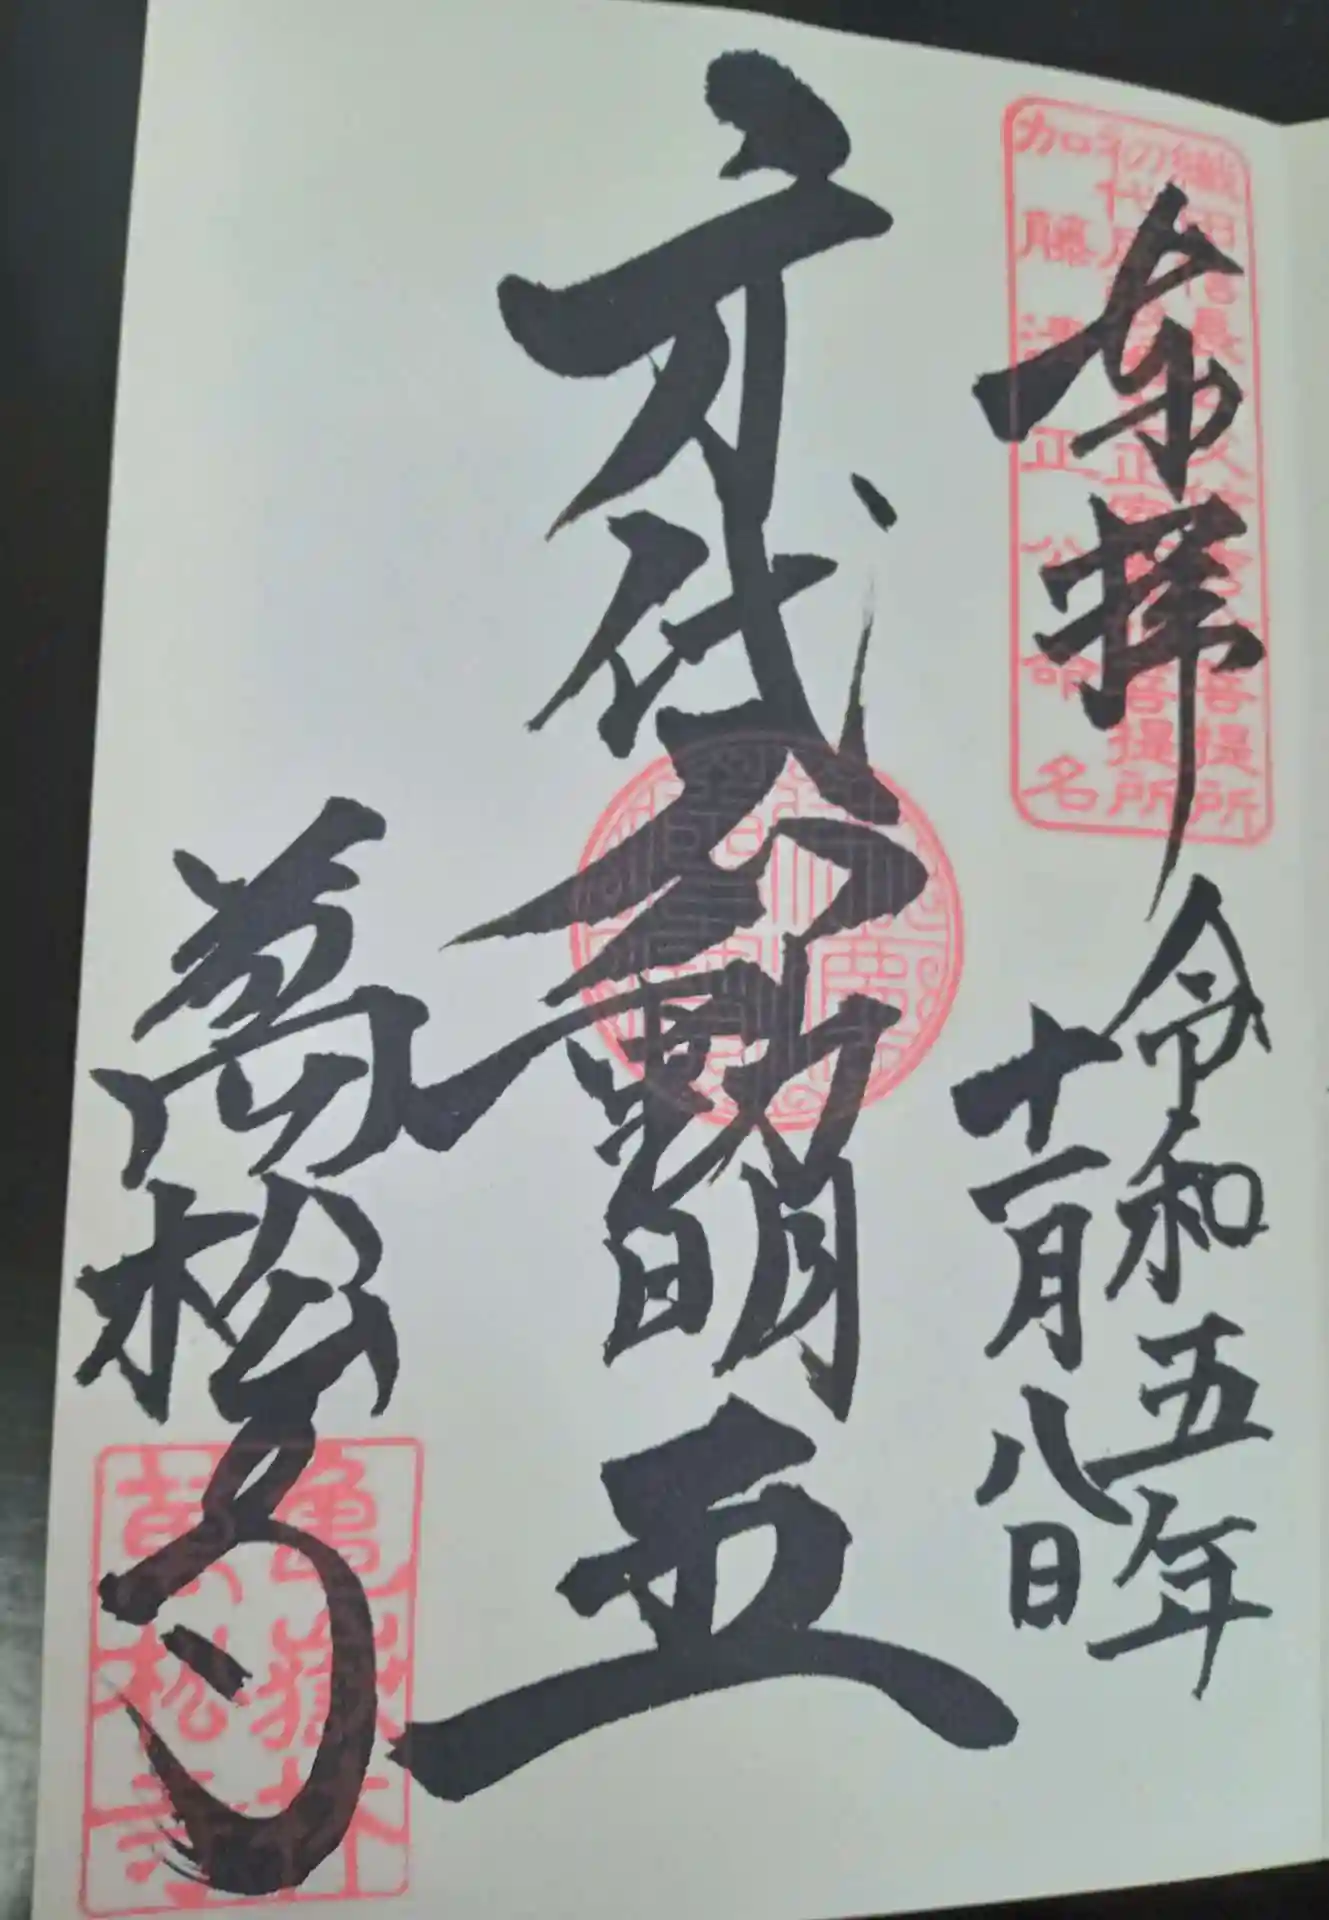 織田信長公父信秀公菩提所
菩提所
加藤清正公命名
奉拝
令和五年
十一月八日
身代不動明王
萬松寺
龜嶽林
萬松寺